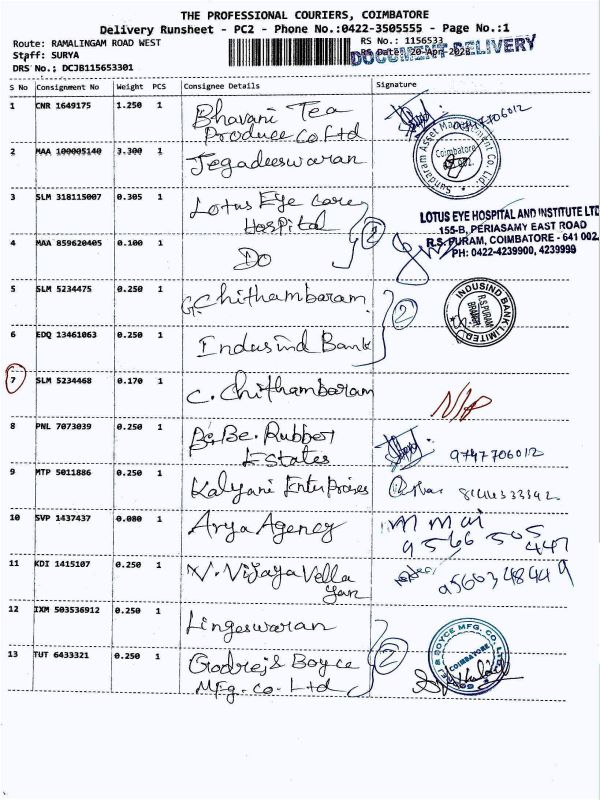 THE PROFESSIONAL COURIERS, COIMBATORE
Delivery Runsheet - PC2 - Phone No.:0422-3505555 - Page No.:1
Route: RAMALINGAM ROAD WEST
RS No.: 1156533
DOCUMENT DELIVERY
Staff: SURYA
RS Date: 20-Apr-2023
DRS No.: DCJB115653301
S No Consignment No Weight PCS Consignee Details Signature
1 CNR 1649175 1.250 1 Bhavani Tea
Produce Co Ltd
9747706012
2 MAA 100005140 3.300 1 Jegadeeswaran
Sundaram Asset Management Co. Ltd.
Coimbatore
3 SLM 318115007 0.305 1 Lotus Eye Care
Hospital
2
LOTUS EYE HOSPITAL AND INSTITUTE LTD
155-B, PERIASAMY EAST ROAD
R.S. PURAM, COIMBATORE - 641 002.
PH: 0422-4239900, 4239999
4 MAA 859620405 0.100 1 Do
5 SLM 5234475 0.250 1 G. Chithambaram
2
INDUSIND BANK LIMITED
R.S. PURAM
BRANCH
6 EDQ 13461063 0.250 1 Indusind Bank
7 SLM 5234468 0.170 1 C. Chithambaram
8 PNL 7073039 0.250 1 Be. Be. Rubber
Estates
9747706012
9 MTP 5011886 0.250 1 Kalyani Enterprises
10 SVP 1437437 0.080 1 Arya Agency
9566 505
447
11 KDI 1415107 0.250 1 V. Vijaya Vella
yan
9560348449
12 IXM 503536912 0.250 1 Lingeswaran
2
13 TUT 6433321 0.250 1 Godrej & Boyce
Mfg. Co. Ltd
GODREJ & BOYCE MFG. CO. LTD.
COIMBATORE